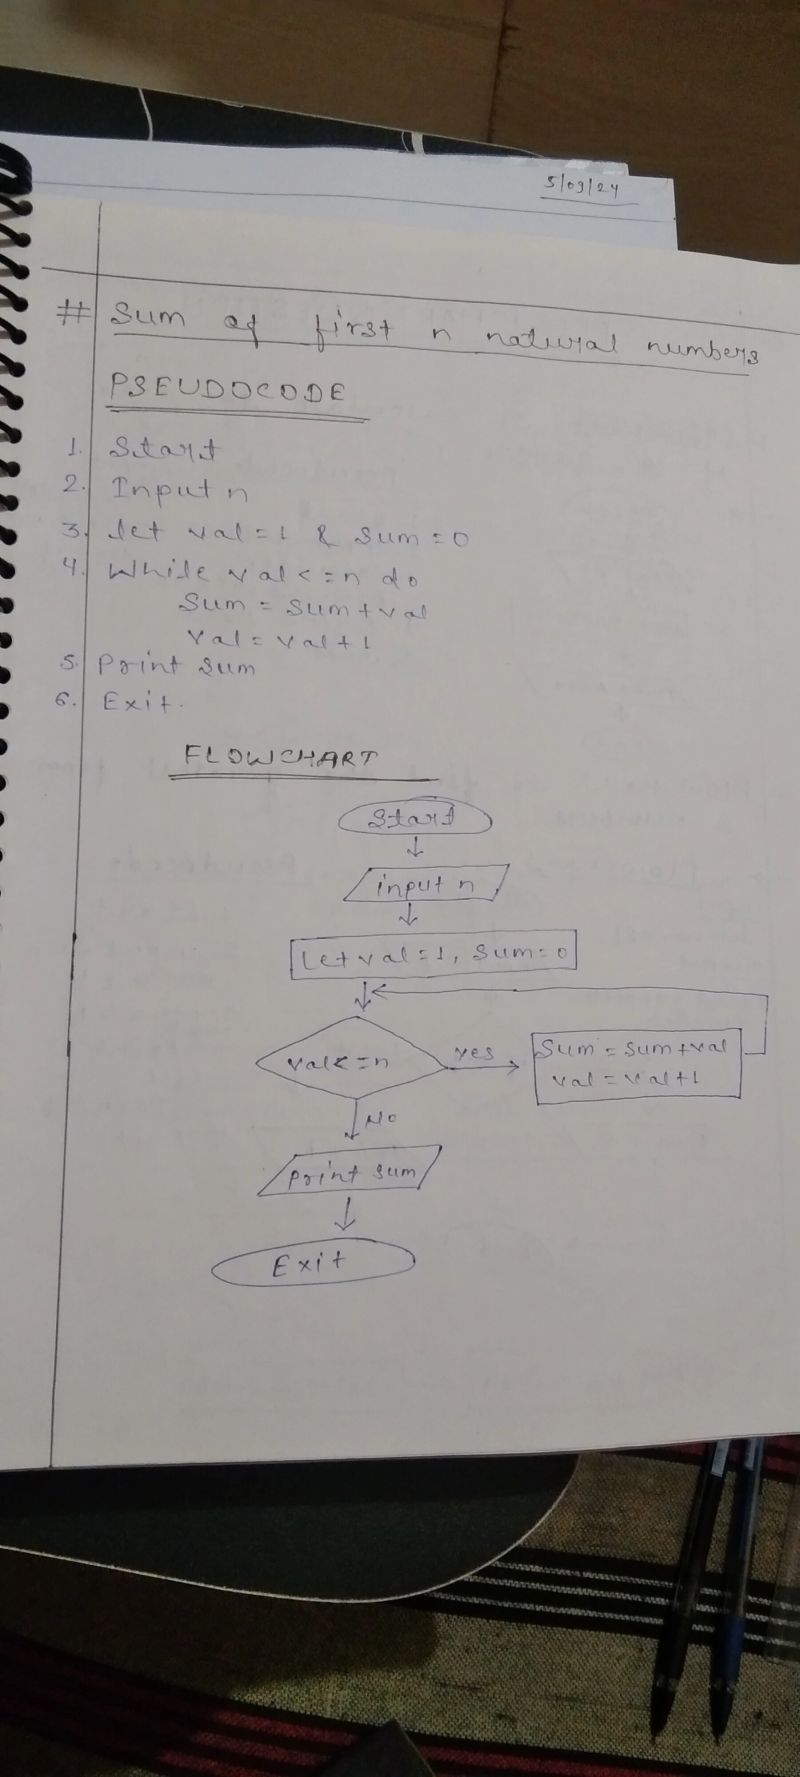 5/03/24
# Sum of first n natural numbers
PSEUDOCODE
1. Start
2. Input n
3. let val = 1 & sum = 0
4. While val <= n do
sum = sum + val
val = val + 1
5. Print sum
6. Exit.
FLOWCHART
Start
input n
Let val = 1, sum = 0
val <= n
yes
Sum = sum + val
val = val + 1
No
print sum
Exit